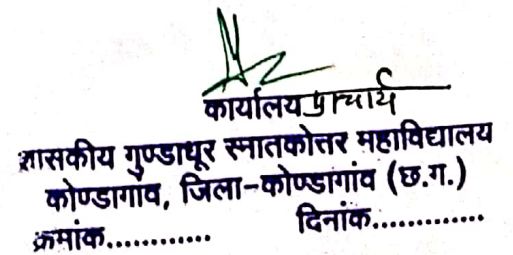 कार्यालय प्राचार्य
शासकीय गुण्डाधूर स्नातकोत्तर महाविद्यालय
कोण्डागांव, जिला-कोण्डागांव (छ.ग.)
क्रमांक............ दिनांक.............